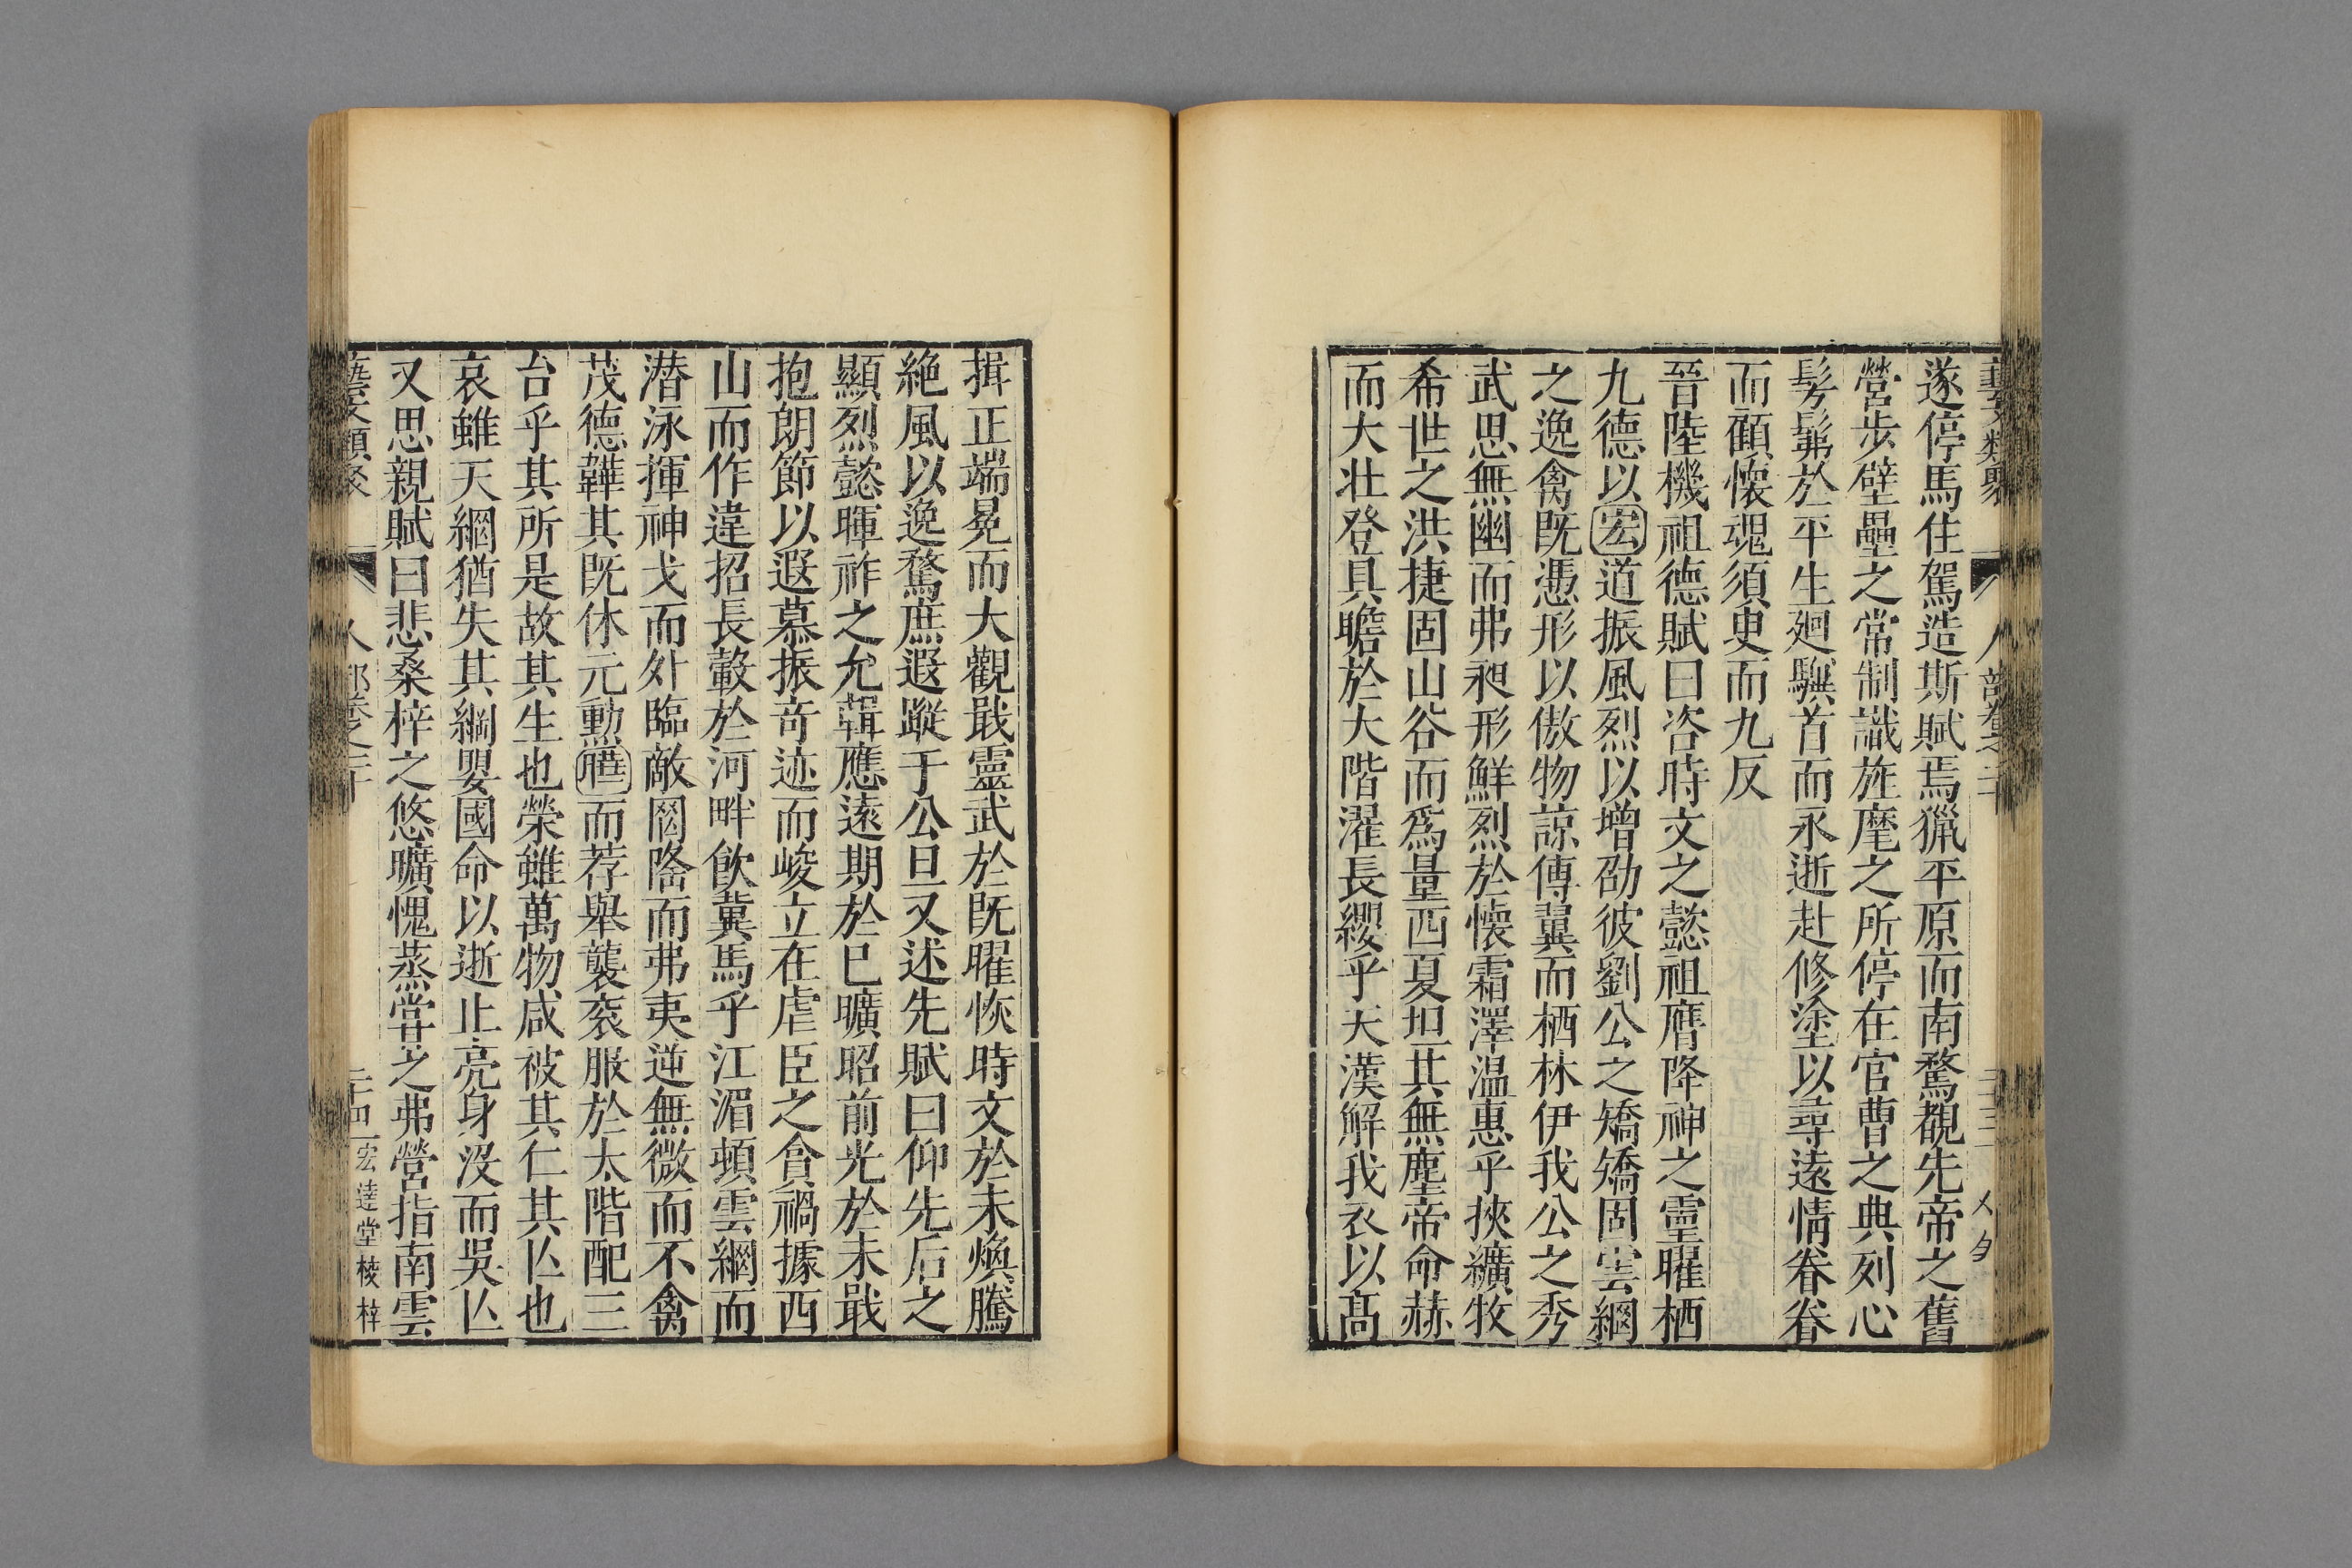 藝文類聚 人部卷之二十 二十三
遂停馬住駕造斯賦焉獵平原而南騖覩先帝之舊
營步壁壘之常制識旌麾之所停在官曹之典列心
髣髴於平生廻驥首而永逝赴修塗以尋遠情眷眷
而顧懷魂須臾而九反
晉陸機祖德賦曰咨時文之懿祖膺降神之靈曜栖
九德以宏道振風烈以增劭彼劉公之矯矯固雲網
之逸禽既憑形以傲物諒傅翼而栖林伊我公之秀
武思無幽而弗昶形鮮烈於懷霜澤温惠乎挾纊牧
希世之洪捷固山谷而爲量西夏坦其無塵帝命赫
而大壮登具瞻於大階濯長纓乎天漢解我衣以髙
揖正端冕而大觀戢靈武於既曜恢時文於未煥騰
絶風以逸騖庶遐蹤于公旦又述先賦曰仰先后之
顯烈懿暉祚之允輯應遠期於已曠昭前光於未戢
抱朗節以遐慕振奇迹而峻立在虐臣之貪禍據西
山而作違招長轂於河畔飲冀馬乎江湄頓雲網而
潜泳揮神戈而外臨敵罔隆而弗夷逆無微而不禽
茂德韡其既休元勳曄而荐舉襲衮服於太階配三
台乎其所是故其生也榮雖萬物咸被其仁其亾也
哀雖天網猶失其綱嬰國命以逝止亮身没而吳亾
又思親賦曰悲桑梓之悠曠愧蒸甞之弗營指南雲
藝文類聚 人部卷之二十 二十四 宏達堂校梓